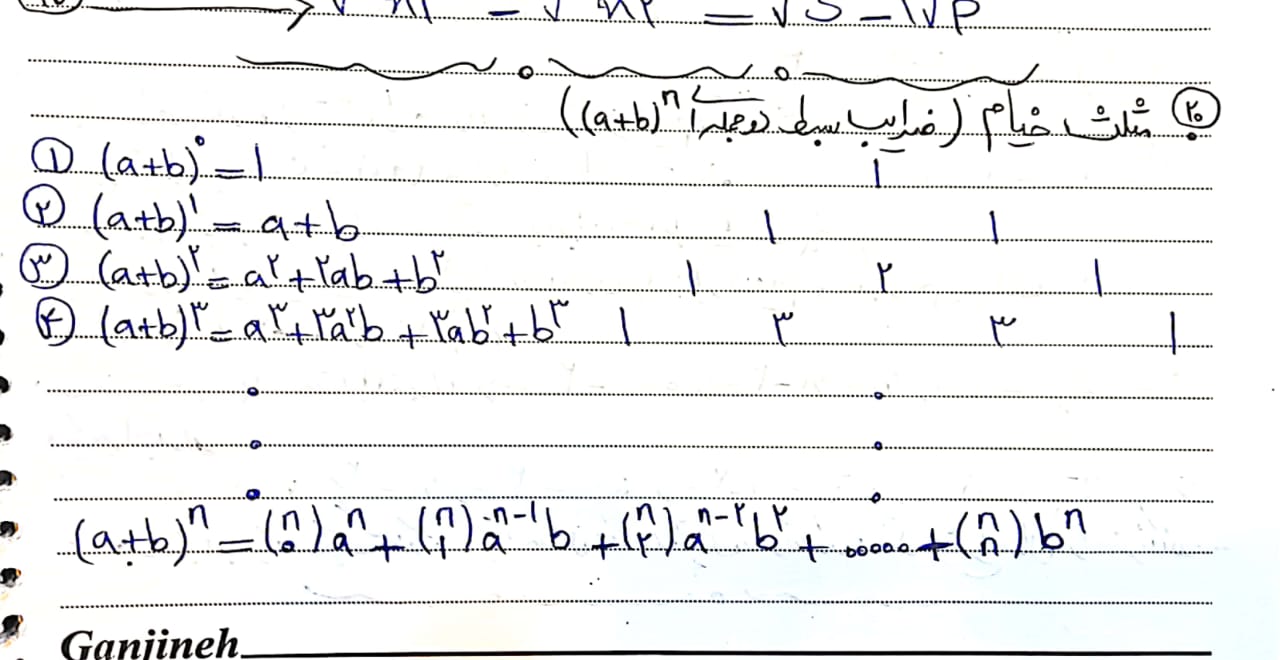 ⟶ √ − √ = √S − ۲√P
۲۰ مثلث خیام (ضرایب بسط دوجمله‌ای (a+b)ⁿ)
۱ (a+b)⁰ = ۱ ۱
۲ (a+b)¹ = a+b ۱ ۱
۳ (a+b)² = a² + ۲ab + b² ۱ ۲ ۱
۴ (a+b)³ = a³ + ۳a²b + ۳ab² + b³ ۱ ۳ ۳ ۱
(a+b)ⁿ = (n ۰) aⁿ + (n ۱) aⁿ⁻¹b + (n ۲) aⁿ⁻²b² + ..... + (n n) bⁿ
Ganjineh